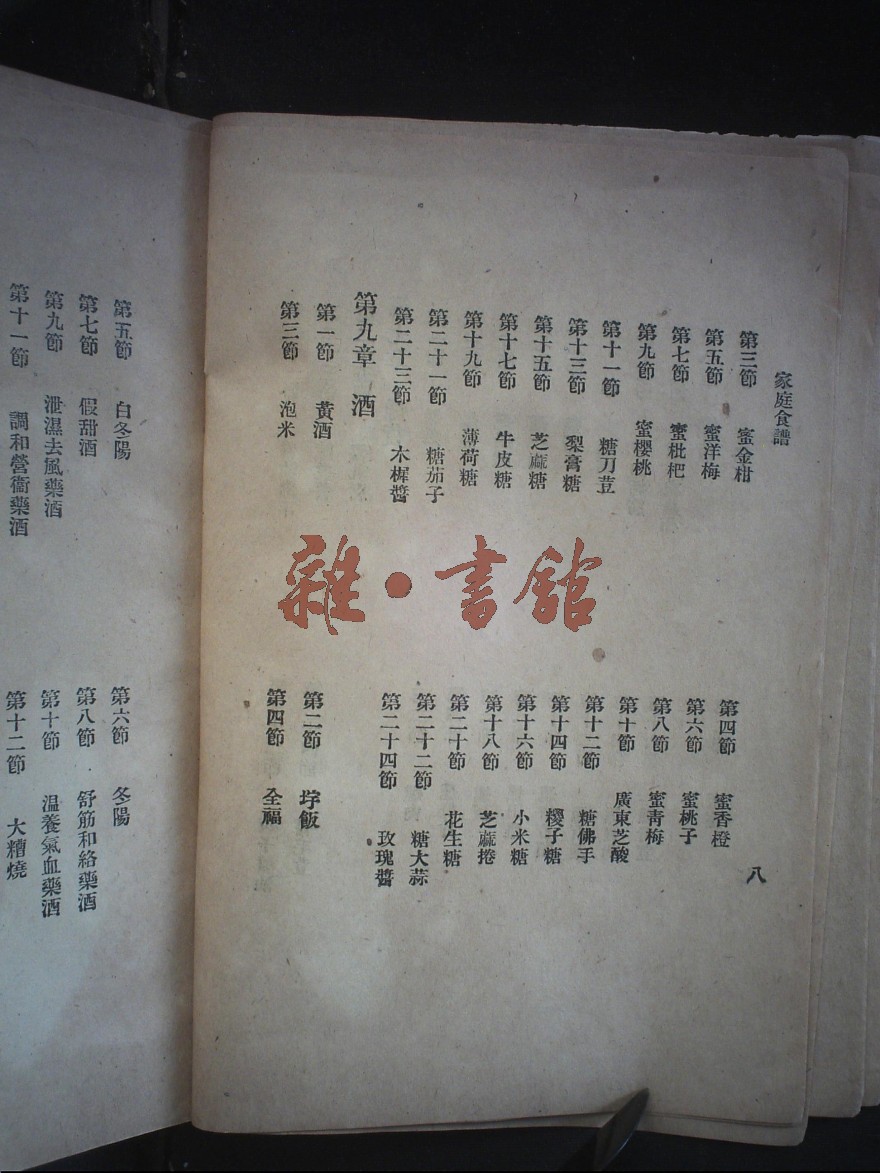 家庭食譜
八
第三節　蜜金柑　第四節　蜜香橙
第五節　蜜洋梅　第六節　蜜桃子
第七節　蜜枇杷　第八節　蜜青梅
第九節　蜜櫻桃　第十節　廣東芝酸
第十一節　糖刀荳　第十二節　糖佛手
第十三節　梨膏糖　第十四節　櫻子糖
第十五節　芝蔴糖　第十六節　小米糖
第十七節　牛皮糖　第十八節　芝蔴捲
第十九節　薄荷糖　第二十節　花生糖
第二十一節　糖茄子　第二十二節　糖大蒜
第二十三節　木樨醬　第二十四節　玫瑰醬
第九章　酒
第一節　黃酒　第二節　垶飯
第三節　泡米　第四節　全福
第五節　白冬陽　第六節　冬陽
第七節　假甜酒　第八節　舒筋和絡藥酒
第九節　泄濕去風藥酒　第十節　温養氣血藥酒
第十一節　調和營衞藥酒　第十二節　大糟燒
雜・書館